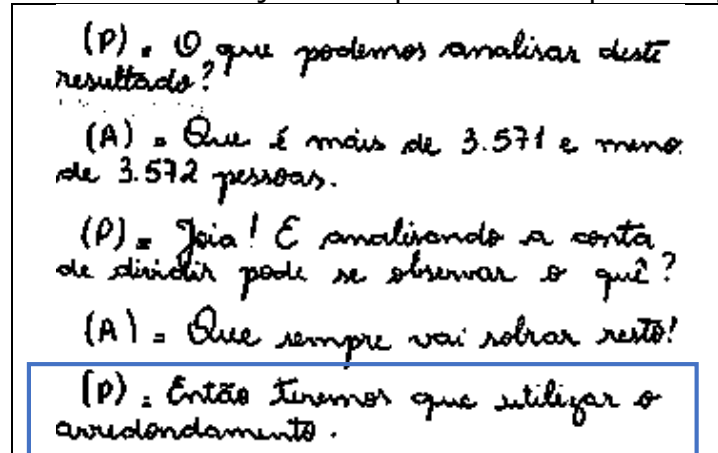 (P) = O que podemos analisar deste
resultado?
(A) = Que é mais de 3.571 e meno
de 3.572 pessoas.
(P) = Joia! E analisando a conta
de dividir pode se observar o quê?
(A) = Que sempre vai sobrar resto!
(P) = Então teremos que utilizar o
arredondamento.